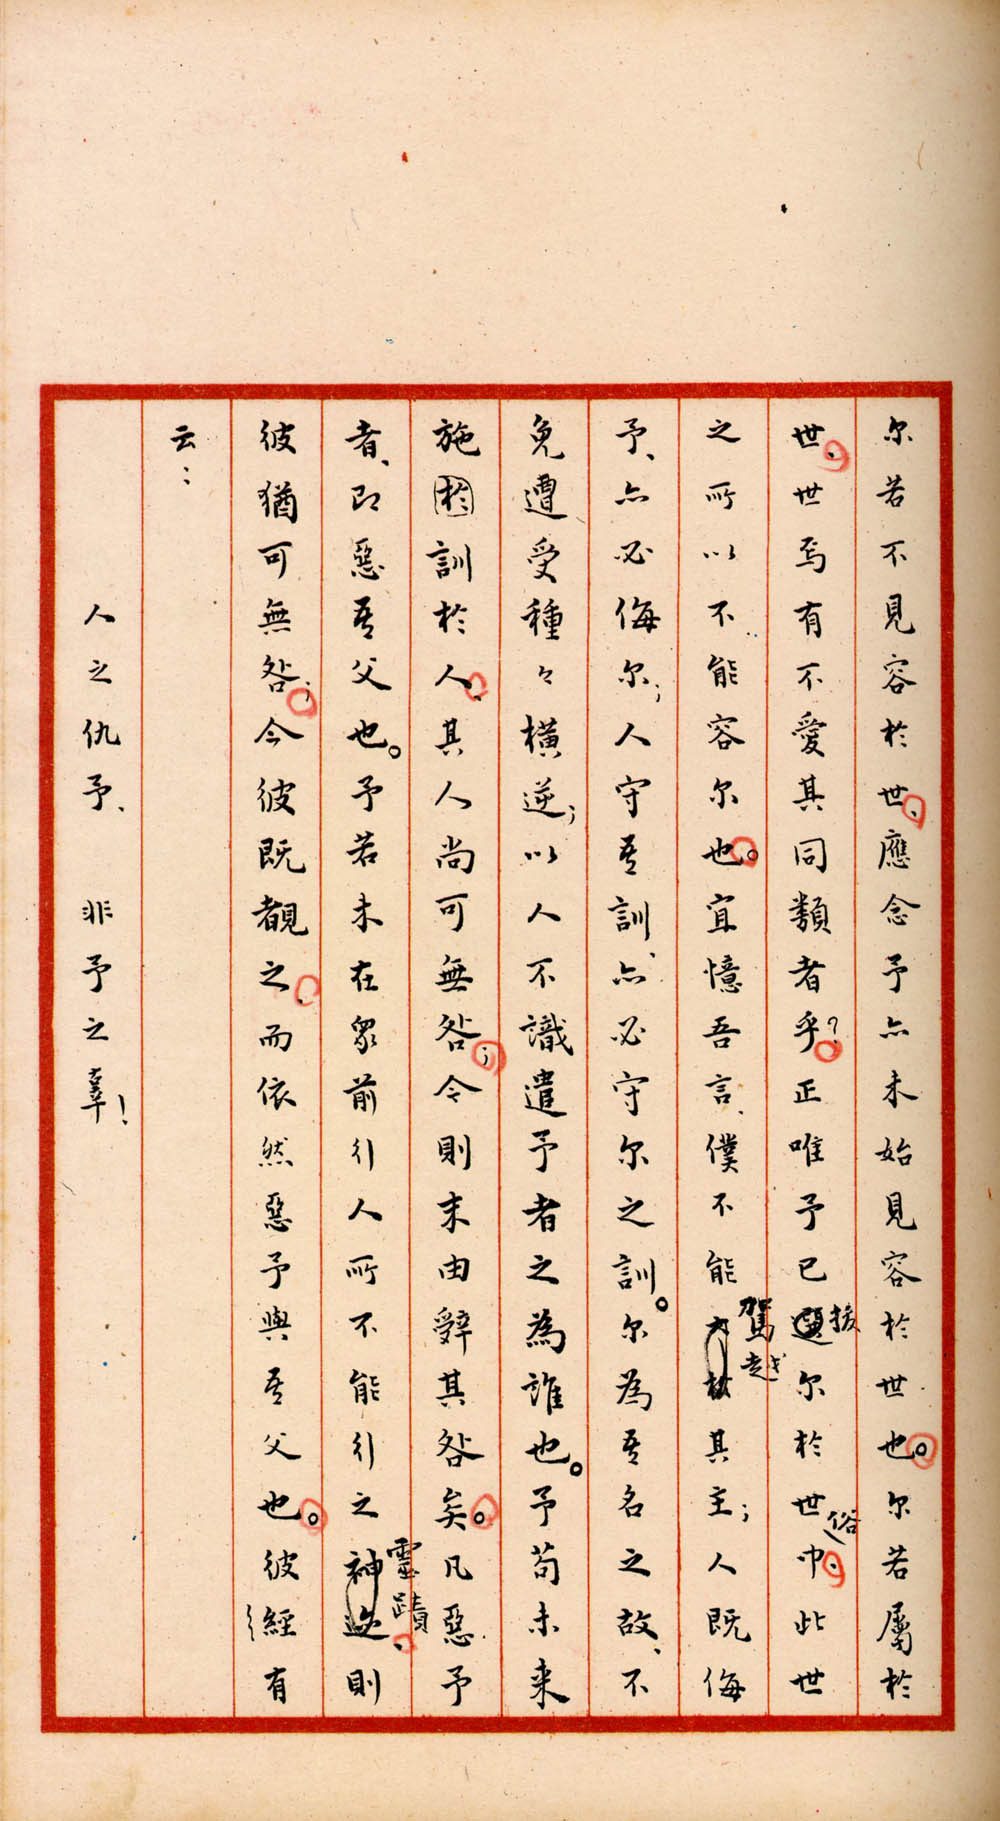 尔若不見容於世、應念予亦未始見容於世也。尔若屬於
世、世焉有不愛其同類者乎？正唯予已援尔於世俗中、此世
之所以不能容尔也。宜憶吾言、僕不能駕越其主；人既侮
予、亦必侮尔；人守吾訓、亦必守尔之訓。尔為吾名之故、不
免遭受種々橫逆；以人不識遣予者之為誰也。予苟未来
施訓於人、其人尚可無咎；今則末由辭其咎矣。凡惡予
者、即惡吾父也。予若未在眾前引人所不能引之靈蹟、則
彼猶可無咎；今彼既覩之、而依然惡予與吾父也。彼經有
云：
人之仇予、　非予之辜！